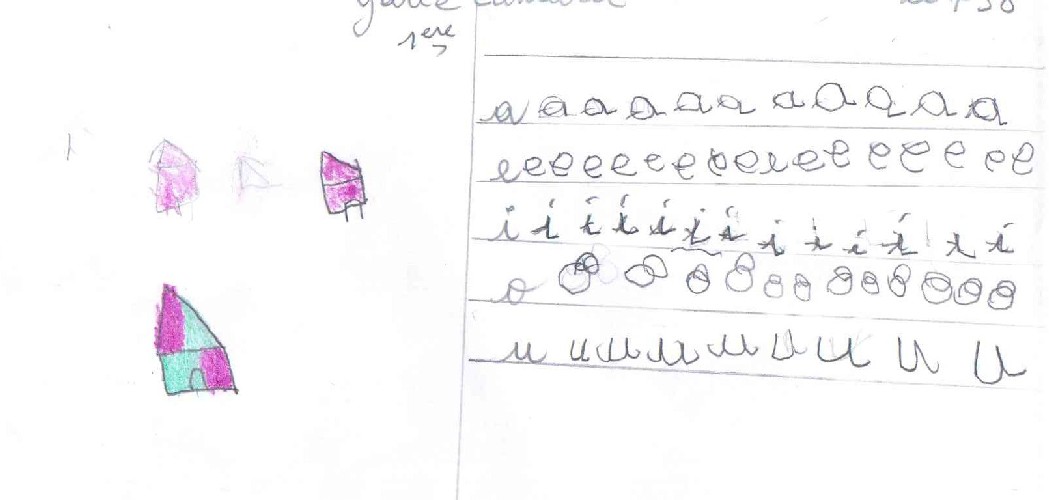 1ere
a a a a a a a a a a a
e e e e e e e e e e e e e e e e e
i i i i i i i i i i i i i
o o o o o o o o o o o o o
u u u u u u u u u